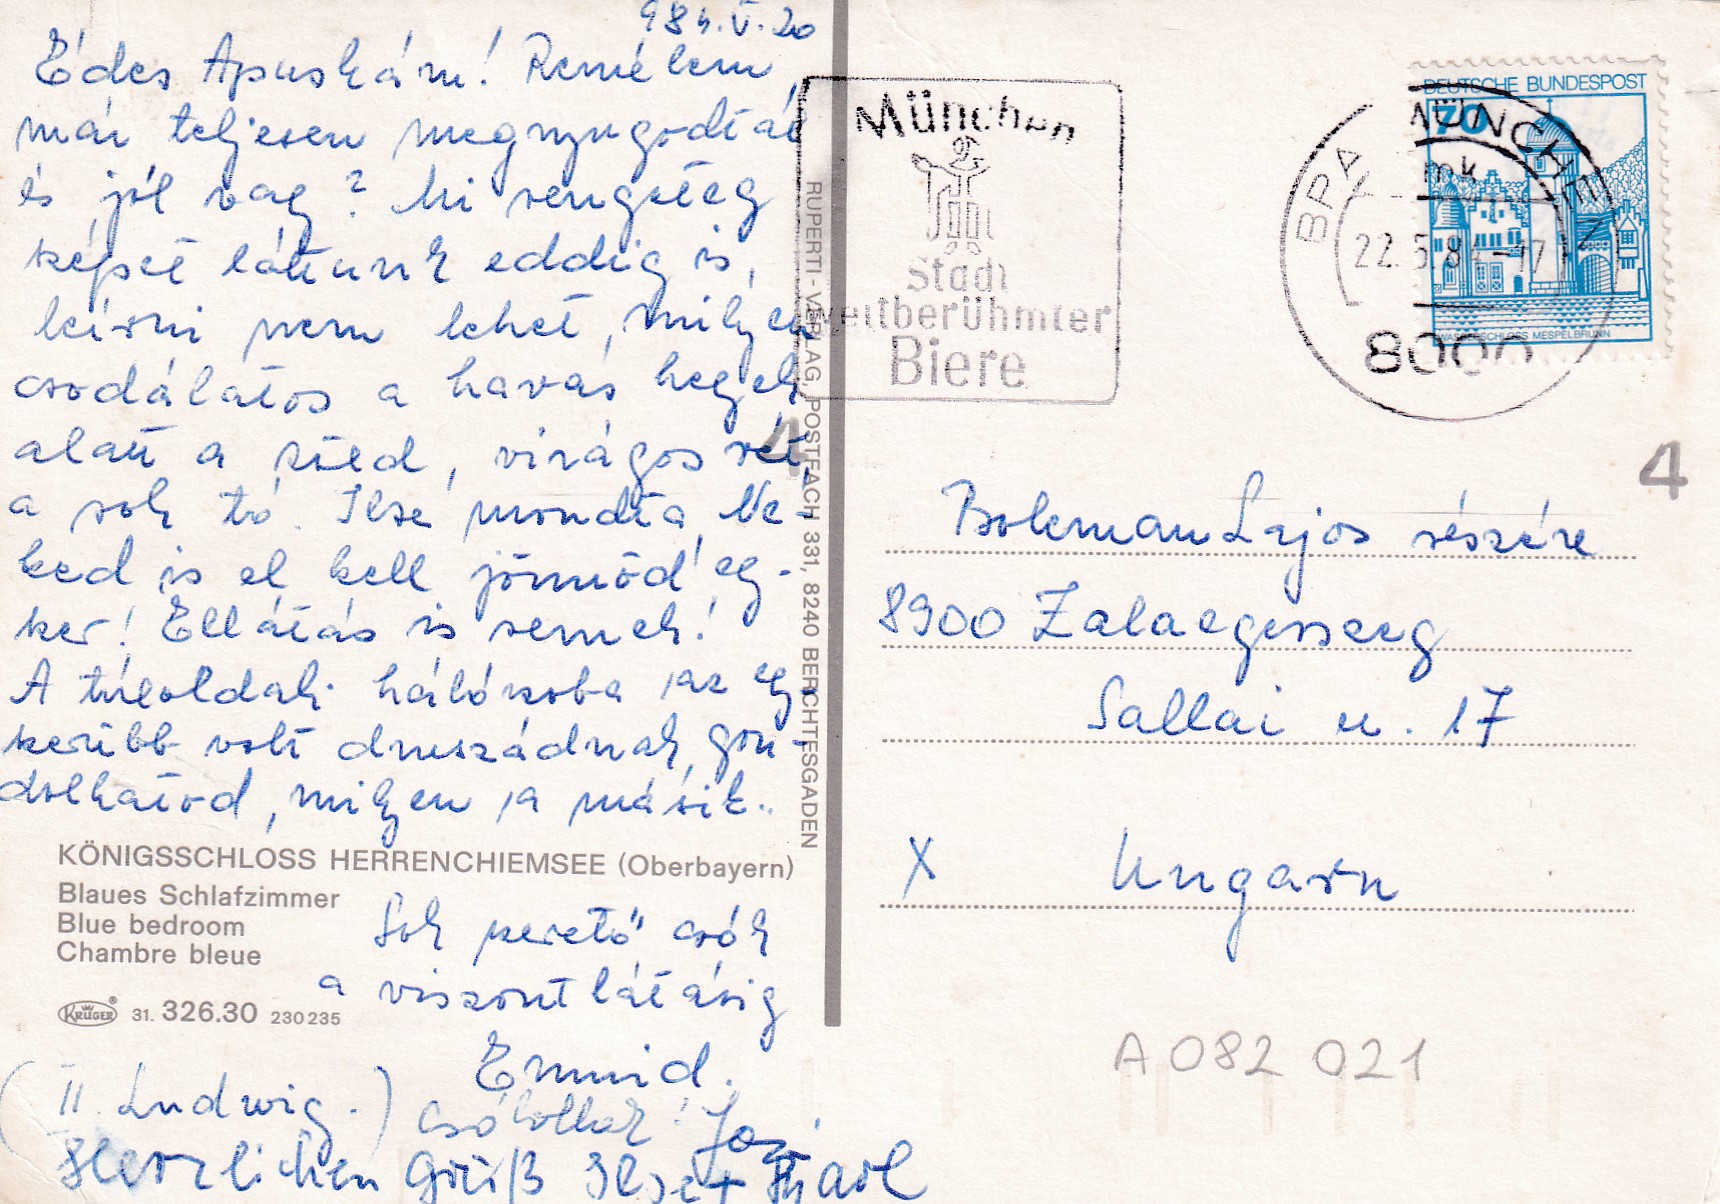 984. V. 20
Édes Apuskám! Remélem,
már teljesen megnyugodtál
és jól vagy? Mi rengeteg
szépet láttunk eddig is,
leírni nem lehet, milyen
csodálatos a havas hegyek
alatt a zöld, virágos rét,
a sok tó. Ilse mondta, Ne-
ked is el kell jönnöd egy-
szer! Ellátás is remek!
A túloldali hálószoba az egy-
szerűbb volt druszádnak, gon-
dolhatod, milyen a másik.
KÖNIGSSCHLOSS HERRENCHIEMSEE (Oberbayern)
Blaues Schlafzimmer
Blue bedroom
Chambre bleue
KRÜGER 31. 326.30 230235
Sok szerető csók
a viszontlátásig
Emmid.
(II. Ludwig.)
Csókollak!
Herzlichen Grüß Ilse + Karl
RUPERTI-VERLAG, POSTFACH 331, 8240 BERCHTESGADEN
München
Stadt
weltberühmter
Biere
BPA MÜNCHEN
mk
22.5.84-17
8000
DEUTSCHE BUNDESPOST
70
WASSERSCHLOSS MESPELBRUNN
4
4
Lajos részére
8900 Zalaegerszeg
Sallai u. 17
X Ungarn
A082 021